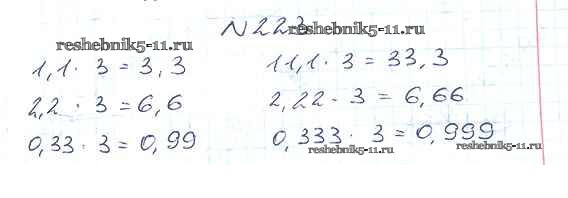 №223
reshebnik5-11.ru
reshebnik5-11.ru
1,1 · 3 = 3,3
11,1 · 3 = 33,3
2,2 · 3 = 6,6
2,22 · 3 = 6,66
0,33 · 3 = 0,99
0,333 · 3 = 0,999
reshebnik5-11.ru
reshebnik5-11.ru